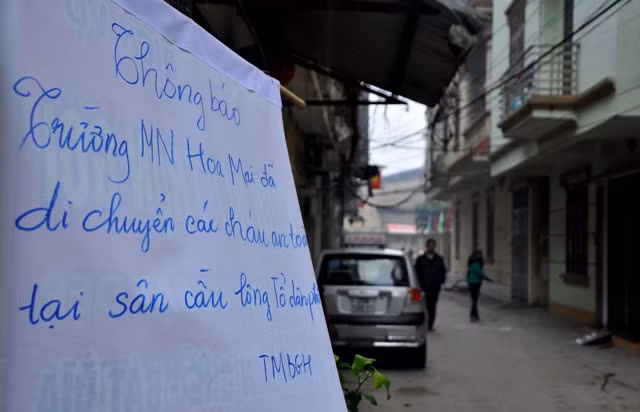 Thông báo
Trường MN Hoa Mai đã
di chuyển các cháu an toàn
tại sân cầu lông Tổ dân
TMBGH